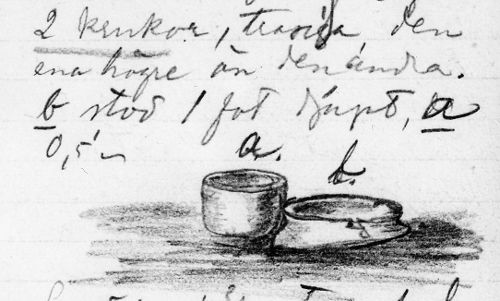 2 krukor, trasiga den
ena högre än den andra.
b stod 1 fot djupt, a
0,5 "
a.
b.